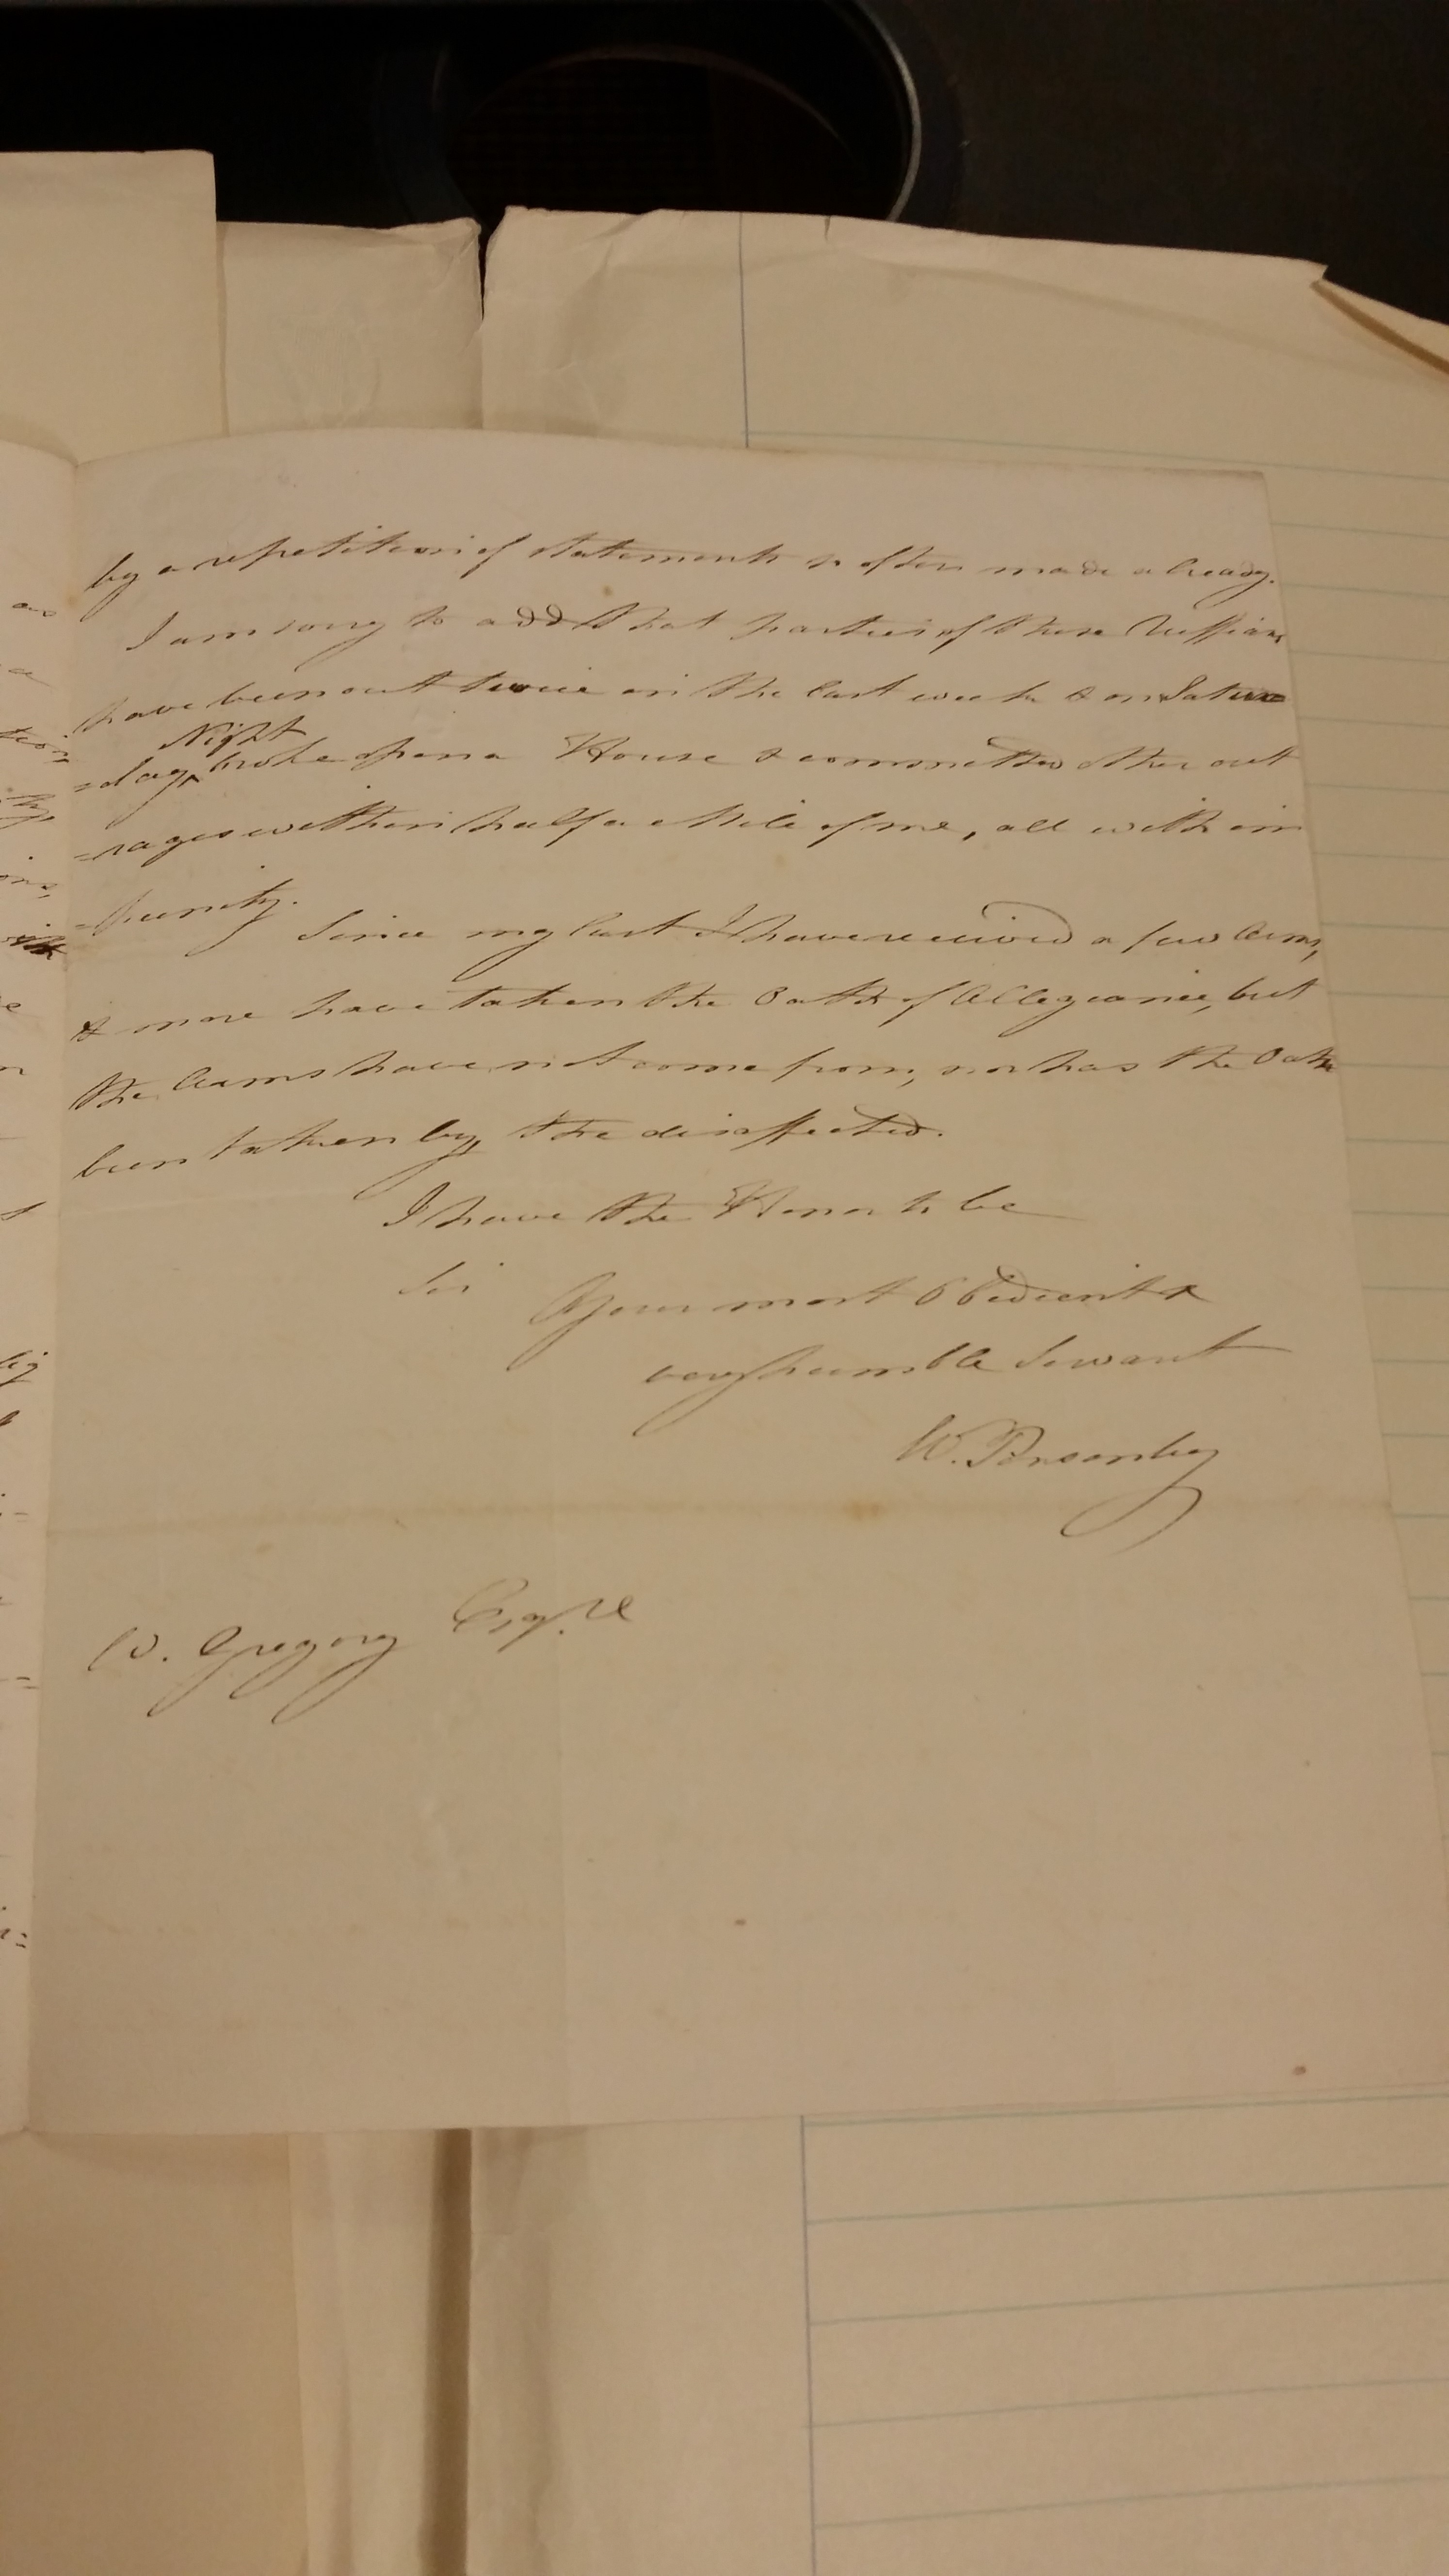 by a repetition of statements so often made already.
I am sorry to add that parties of these Ruffians
have been out twice in the last week & on Satur
=day Night broke open a House & committed other out
=rages within half a Mile of me, all with im
=punity.
Since my last I have received a few Arms,
& more have taken the Oath of Allegiance, but
the Arms have not come from, nor has the Oath
been taken by, the disaffected.
I have the Honor to be
Sir Your most Obedient &
very humble Servant
W. Ponsonby
W. Gregory Esq.re